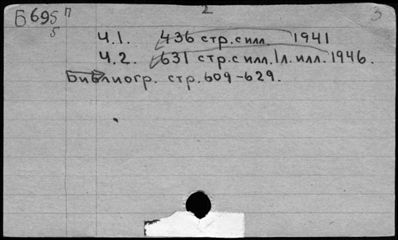 2 3
Б695 п
5
Ч.1. 436 стр.с илл. 1941
Ч.2. 631 стр.с илл.1л.илл.1946.
Библиогр. стр.609-629.